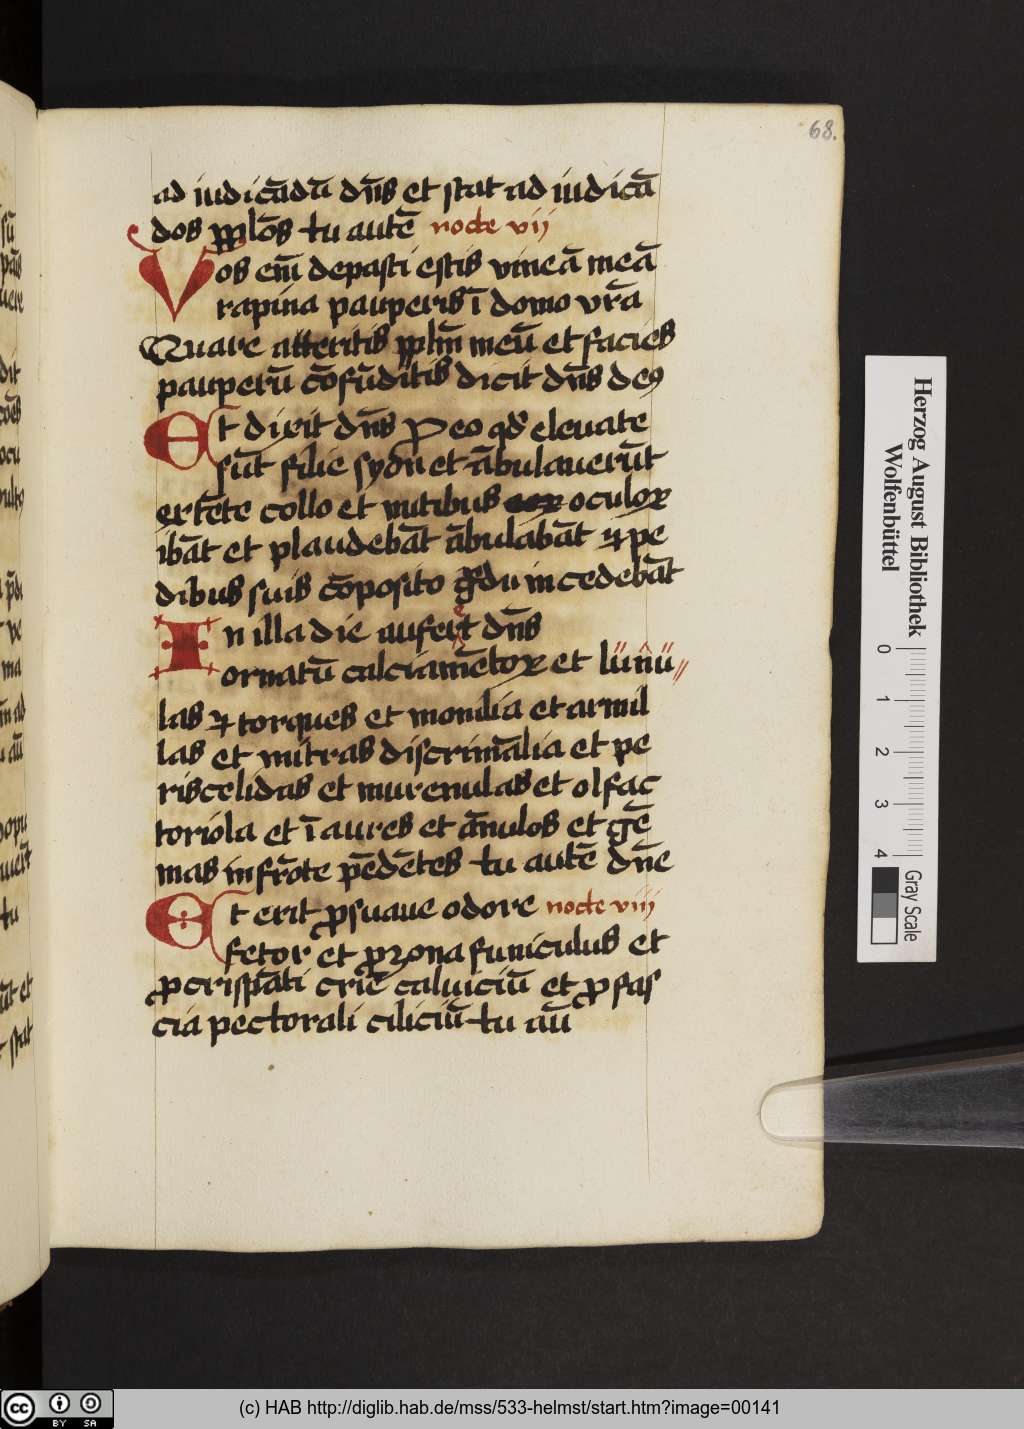 68.
ad iudicādū dn̄s et stat ad iudicā
dos pp̄lōs tu autē nocte vij
Vos em̄ depasti estis vineā meā
rapina pauperis ī domo vr̄a
Quare atteritis pp̄lm̄ meū et facies
pauperū cōfūditis dicit dn̄s deꝰ
Et dixit dn̄s Pro eo qd̓ eleuate
sūt filie syon et ābulauerūt
extēte collo et nutibus oculoꝝ
ibāt et plaudebāt ābulabāt ⁊ pe
dibus suis cōposito gͣdu incedebāt
In illa die auferet dn̄s
ornatū calciamētoꝝ et lunu
las ⁊ torques et monilia et armil
las et mitras discrimīalia et pe
riscelidas et murenulas et olfac
toriola et īaures et ānulos et gē
mas in frōte pēdētes tu autē dn̄e
Et erit ꝓ suaue odore nocte viij
fetor et ꝓ zona funiculus et
ꝓ crispāti crīe caluiciū et ꝓ fas
cia pectorali ciliciū tu aū
Herzog August Bibliothek
Wolfenbüttel
0 1 2 3 4
Gray Scale
cc BY SA
(c) HAB http://diglib.hab.de/mss/533-helmst/start.htm?image=00141